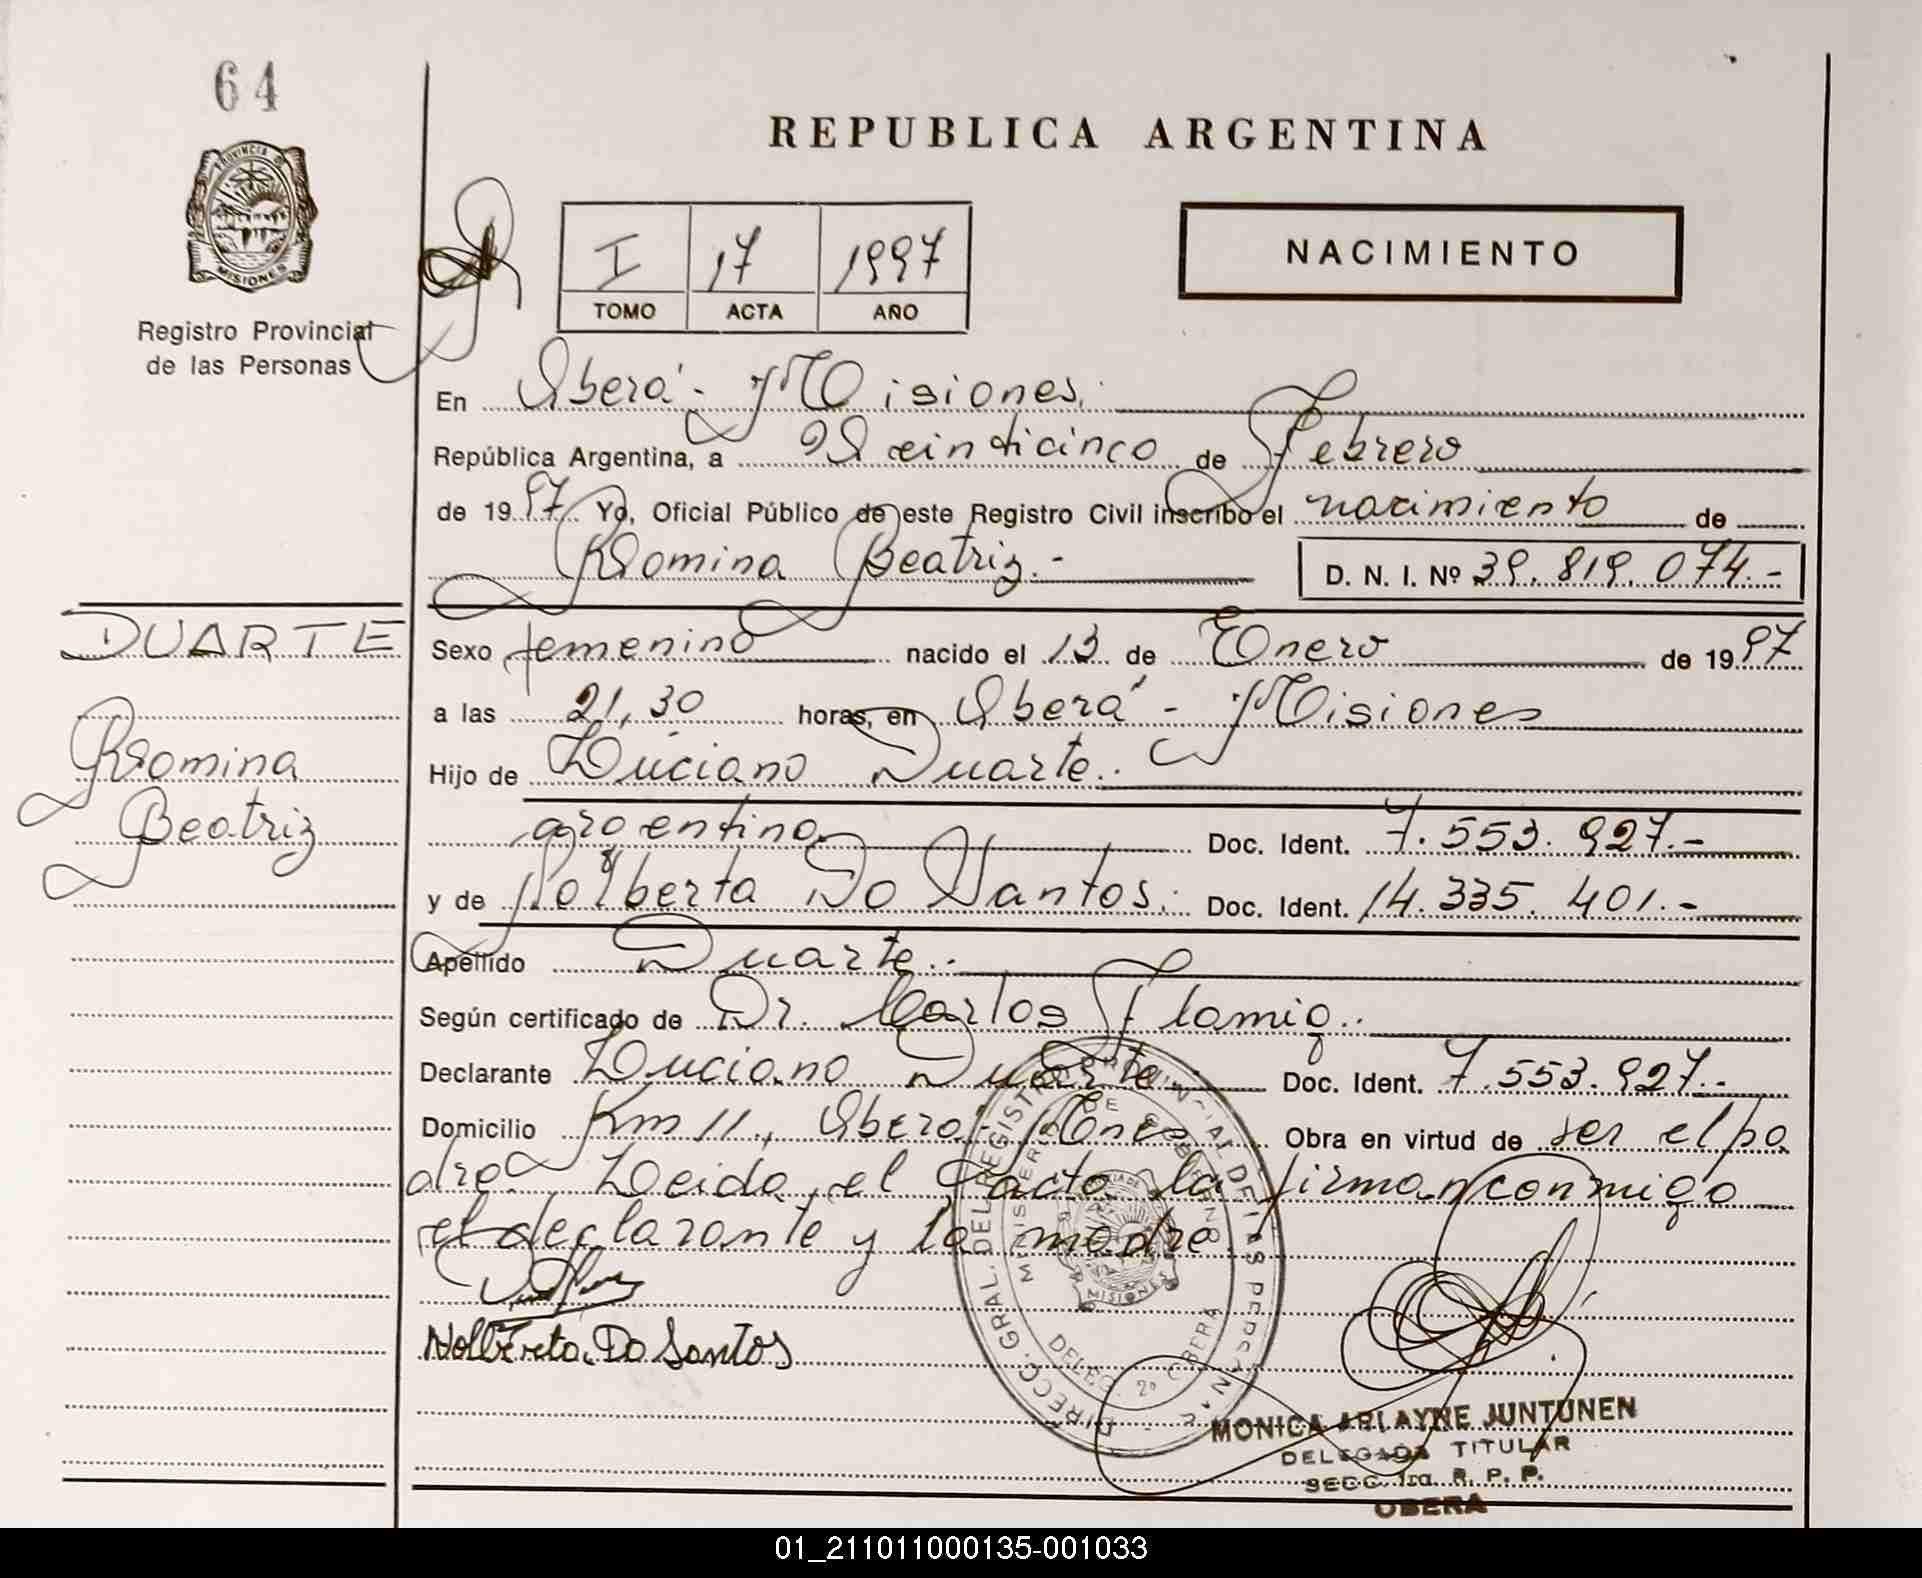 64
PROVINCIA DE
MISIONES
Registro Provincial
de las Personas
REPUBLICA ARGENTINA
I 17 1997
TOMO ACTA AÑO
NACIMIENTO
En Oberá - Misiones.
República Argentina, a Veinticinco de Febrero
de 1997 Yo, Oficial Público de este Registro Civil inscribo el nacimiento de
Romina Beatriz.- D. N. I. Nº 39.819.074.-
DUARTE
Romina
Beatriz
Sexo femenino nacido el 13 de Enero de 1997
a las 21,30 horas, en Oberá - Misiones
Hijo de Luciano Duarte..
argentino Doc. Ident. 7.553.927.-
y de Nolberta Do Santos. Doc. Ident. 14.335.401.-
Apellido Duarte..
Según certificado de Dr. Carlos
Declarante Luciano Duarte Doc. Ident. 7.553.927.-
Domicilio Km 11, Oberá - Mnes Obra en virtud de ser el pa
dre. Leida el acta la firman conmigo
el declarante y la madre
Nolberta Do Santos
DIRECC. GRAL. DEL REGISTRO PROVINCIAL DE LAS PERSONAS
MINISTERIO DE GOBIERNO
MISIONES
DELEG. 2ª OBERA
MONICA ARLAYNE JUNTUNEN
DELEGADA TITULAR
SECC. 1ra. R. P. P.
OBERA
01_211011000135-001033